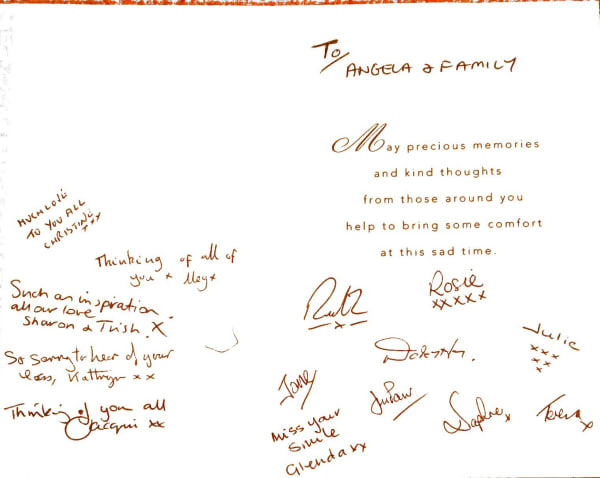 To
ANGELA & FAMILY
May precious memories
and kind thoughts
from those around you
help to bring some comfort
at this sad time.
MUCH LOVE
TO YOU ALL
CHRISTINE
xxx
Thinking of all of
you x Meg x
Such an inspiration.
all our love
Sharon & Trish. X
So sorry to hear of your
loss, Kathryn x x
Thinking of you all
Jacqui xx
x
Rosie
xxxxx
Julie
xxx
xx
x
Dorothy
Jane
Miss your
Smile
Glenda xx
Sophie x
Teresa
x